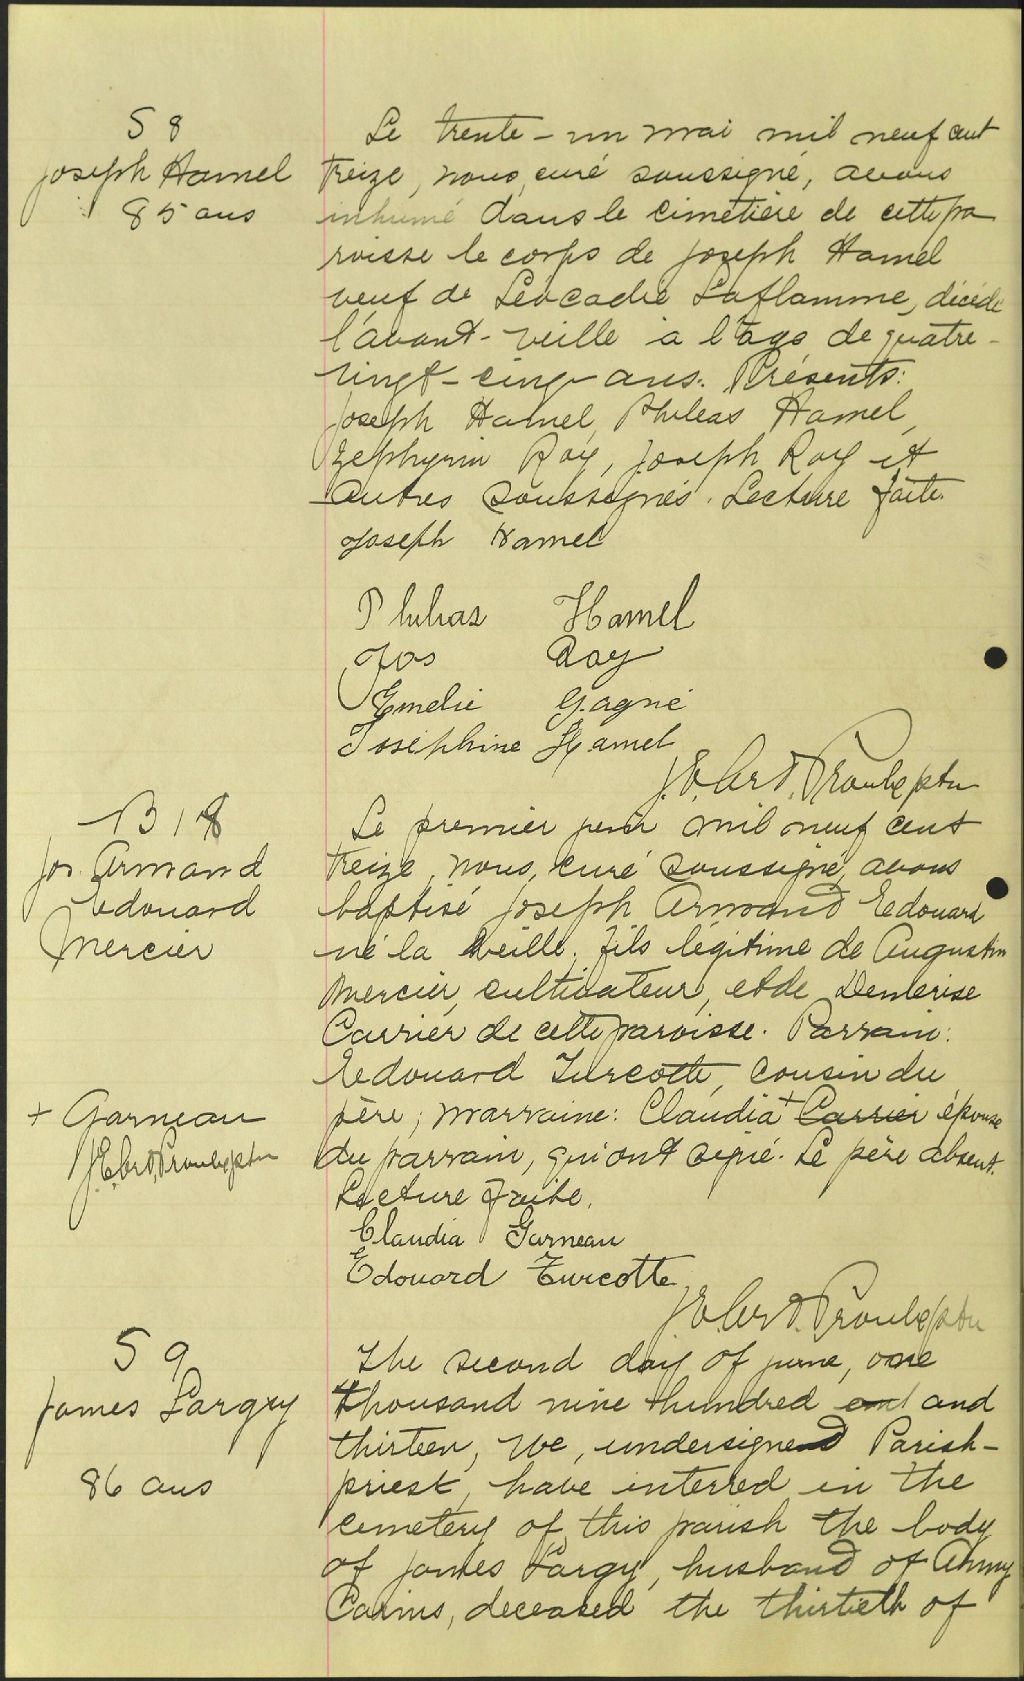 S 8
Joseph Hamel
85 ans
Le trente-un mai mil neuf cent
treize, nous, curé soussigné, avons
inhumé dans le cimetière de cette pa
roisse le corps de Joseph Hamel
veuf de Léocadie Laflamme, décédé
l'avant-veille à l'âge de quatre-
vingt-cinq ans. Présents:
Joseph Hamel, Phileas Hamel,
Zephyrin Roy, Joseph Roy et
autres soussignés. Lecture faite.
Joseph Hamel
Phileas Hamel
Jos Roy
Emelie Gagné
Josephine Hamel
J. E. Ptre
B 18
Jos. Armand
Edouard
Mercier
Le premier juin mil neuf cent
treize, nous, curé soussigné, avons
baptisé Joseph Armand Edouard
né la veille, fils légitime de Augustin
Mercier, cultivateur, et de Demerise
Carrier de cette paroisse. Parrain:
Edouard Turcotte, cousin du
père; marraine: Claudia + Carrier épouse
du parrain, qui ont signé. Le père absent.
Lecture faite.
+ Garneau
J. E. Ptre
Claudia Garneau
Edouard Turcotte
J. E. Ptre
S 9
James Largry
86 ans
The second day of june, one
thousand nine hundred and and
thirteen, we, undersigned Parish-
priest, have interred in the
cemetery of this parish the body
of James Largy, husband of
Cairns, deceased the thirtieth of